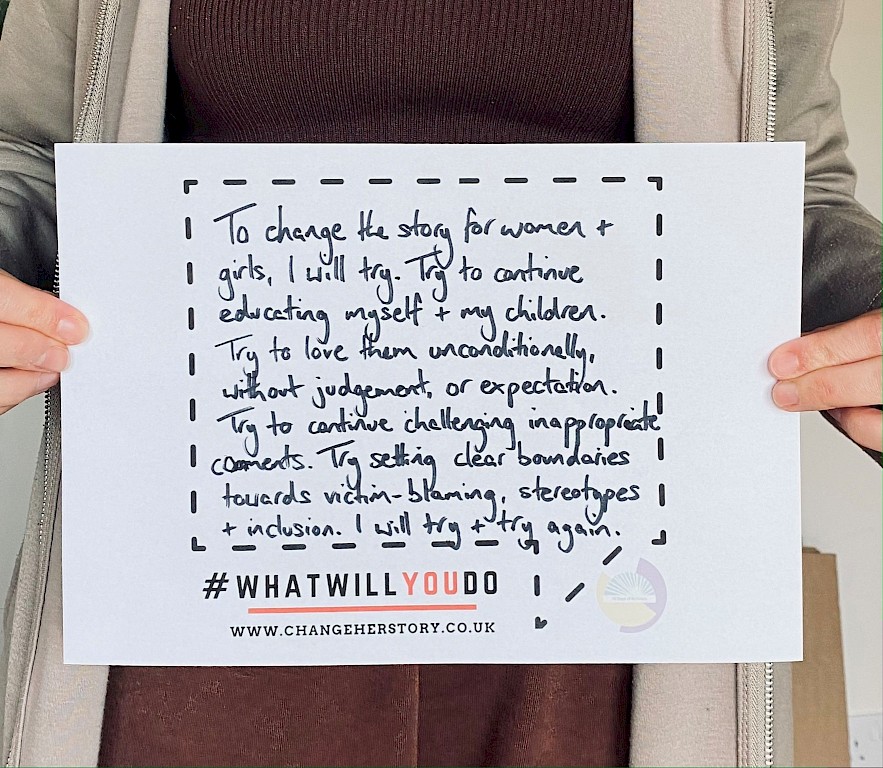 To change the story for women +
girls, I will try. Try to continue
educating myself + my children.
Try to love them unconditionally,
without judgement, or expectation.
Try to continue challenging inappropriate
comments. Try setting clear boundaries
towards victim-blaming, stereotypes
+ inclusion. I will try + try again.
#WHATWILLYOUDO
WWW.CHANGEHERSTORY.CO.UK